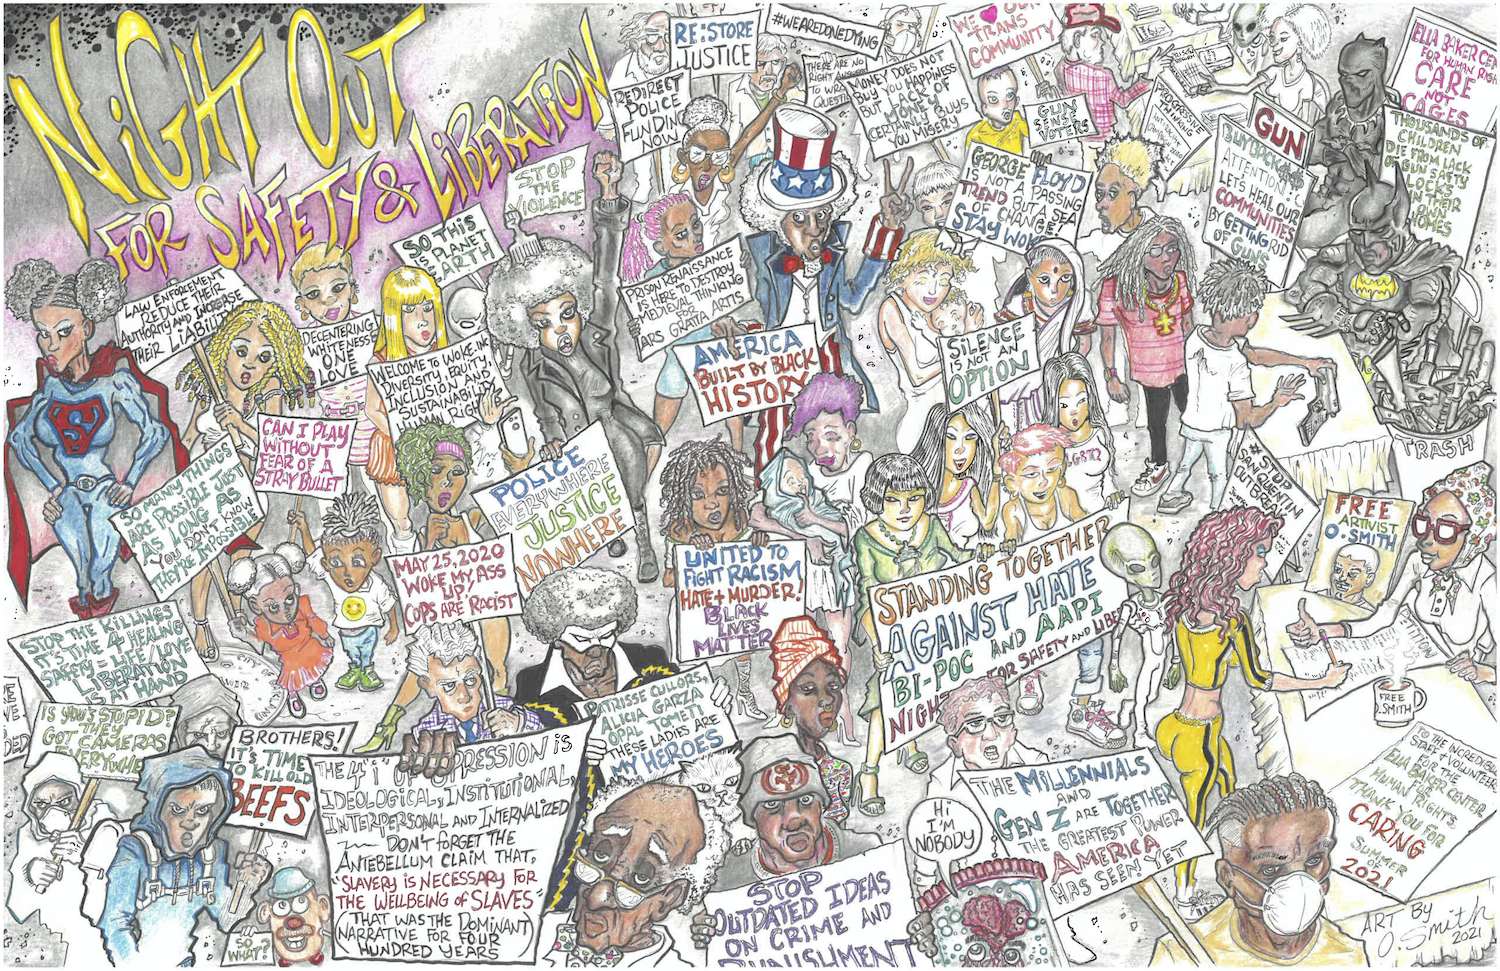 NiGHT OUT
FOR SAFETY & LiBERATiON
RE:STORE
JUSTICE
#WEAREDONEDYING
WE OUR
TRANS
COMMUNITY
REDIRECT
POLICE
FUNDING
NOW
THERE ARE NO
RIGHT
TO WRONG
MONEY DOES NOT
BUY YOU HAPPINESS
BUT LACK OF
MONEY
CERTAINLY BUYS
YOU MISERY
GUN
SENSE
VOTERS
PROGRESSIVE
THINKING
ELLA BAKER CEN
FOR HUMAN RIGH
CARE
NOT
CAGES
GUN
BUYBACK $$
ATTENTION!
LET'S HEAL OUR
COMMUNITIES
BY GETTING RID
OF GUNS
THOUSANDS OF
CHILDREN
DIE FROM LACK
OF GUN SAFTY
LOCKS
IN THEIR
OWN
HOMES
STOP
THE
VIOLENCE
GEORGE FLOYD
IS NOT A PASSING
TREND BUT A SEA
OF CHANGE
STAY WOK
SO THIS
IS PLANET
EARTH
LAW ENFORCEMENT
REDUCE THEIR
AUTHORITY AND INCREASE
THEIR LIABILITY
PRISON RENAISSANCE
IS HERE TO DESTROY
MEDIEVAL THINKING
FOR
ARS GRATIA ARTIS
DECENTERING
WHITENESS
ONE
LOVE
WELCOME TO WOKE.INC
DIVERSITY, EQUITY,
INCLUSION AND
SUSTAINABILITY
RIGH
AMERICA
BUILT BY BLACK
HISTORY
SILENCE
IS NOT AN
OPTION
S
CAN I PLAY
WITHOUT
FEAR OF A
STRAY BULLET
LGBTQ
TRASH
SO MANY THINGS
ARE POSSIBLE JUST
AS LONG AS
YOU DON'T KNOW
THEY'RE IMPOSSIBLE
POLICE
EVERYWHERE
JUSTICE
NOWHERE
# STOP
SAN QUENTIN
OUTBREAK
FREE
ARTIVIST
O. SMITH
MAY 25, 2020
WOKE MY ASS
UP!
COPS ARE RACIST
UNITED TO
FIGHT RACISM
HATE + MURDER!
BLACK
LIVES
MATTER
STANDING TOGETHER
AGAINST HATE
BI-POC AND AAPI
NIGH FOR SAFETY AND LIBE
STOP THE KILLINGS
IT'S TIME 4 HEALING
SAFETY = LIFE/LOVE
LIBERATION
IS AT HAND
FREE
O.SMITH
PATRISSE CULLORS,
ALICIA GARZA
OPAL TOMETI
THESE LADIES ARE
MY HEROES
IS YOU STUPID?
THEY
GOT CAMERAS
EVERYWHE
BROTHERS!
IT'S TIME
TO KILL OLD
BEEFS
THE 4 "i" OF OPPRESSION iS
IDEOLOGICAL, INSTITUTIONAL,
INTERPERSONAL AND INTERNALIZED
DON'T FORGET THE
ANTEBELLUM CLAIM THAT,
"SLAVERY IS NECESSARY FOR
THE WELLBEING OF SLAVES"
(THAT WAS THE DOMINANT
NARRATIVE FOR FOUR
HUNDRED YEARS)
SO
WHAT?
SF
STOP
OUTDATED IDEAS
ON CRIME AND
PUNISHMENT
Hi
I'M
NOBODY
THE MILLENNIALS
AND
GEN Z ARE TOGETHER
THE GREATEST POWER
AMERICA
HAS SEEN YET
TO THE INCREDIBLE
STAFF & VOLUNTEERS
FOR THE
ELLA BAKER CENTER
FOR
HUMAN RIGHTS,
THANK YOU FOR
CARING
SUMMER
OF
2021
ART BY
O. Smith
2021